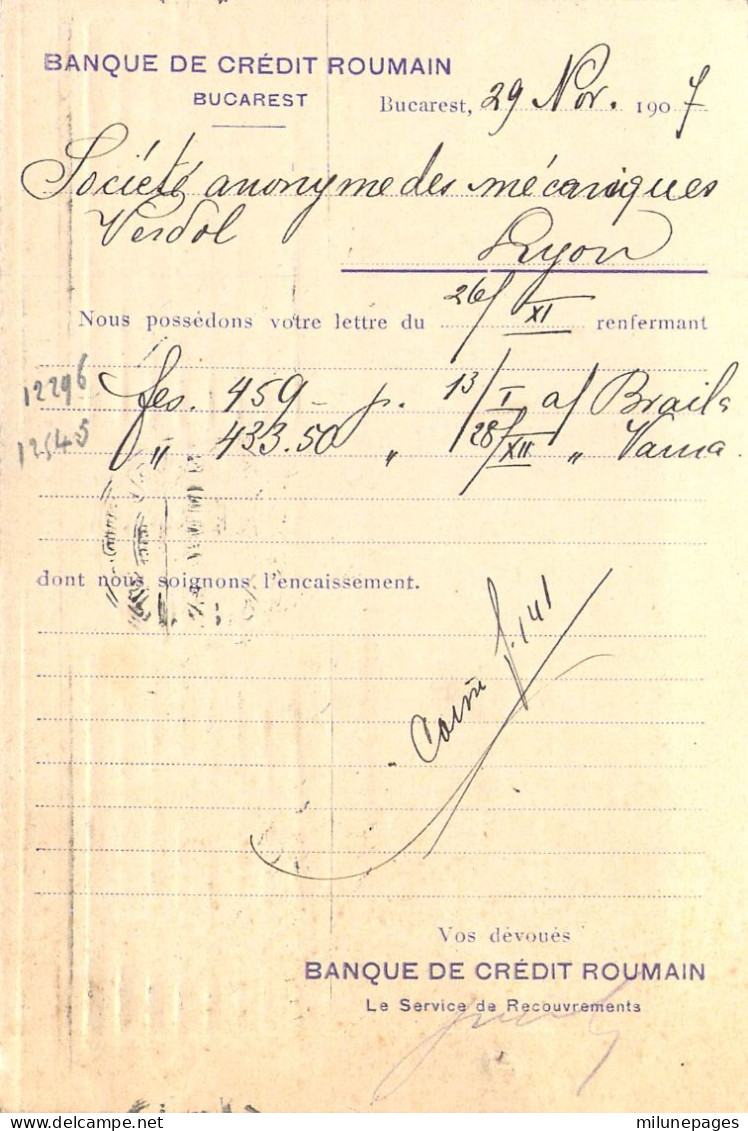 BANQUE DE CRÉDIT ROUMAIN
BUCAREST
Bucarest, 29 Nov. 1907
Société anonyme des mécaniques
Verdol Lyon
Nous possédons votre lettre du 26/XI renfermant
12296 fcs. 459 - p. 13/I a/ Braila
12545 " 433.50 " 28/XII " Varna
dont nous soignons l'encaissement.
f. 141
Vos dévoués
BANQUE DE CRÉDIT ROUMAIN
Le Service de Recouvrements
milunepages